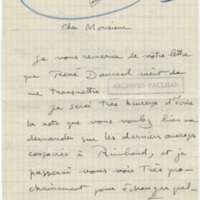 Cher Monsieur
Je vous remercie de votre lettre
que René Daumal vient de
me transmettre.
ARCHIVES PAULHAN
Je serai très heureux d'écrire
la note que vous voulez bien me
demander sur les derniers ouvrages
consacrés à Rimbaud, et je
passerai vous voir très pro-
chainement pour échanger quel-